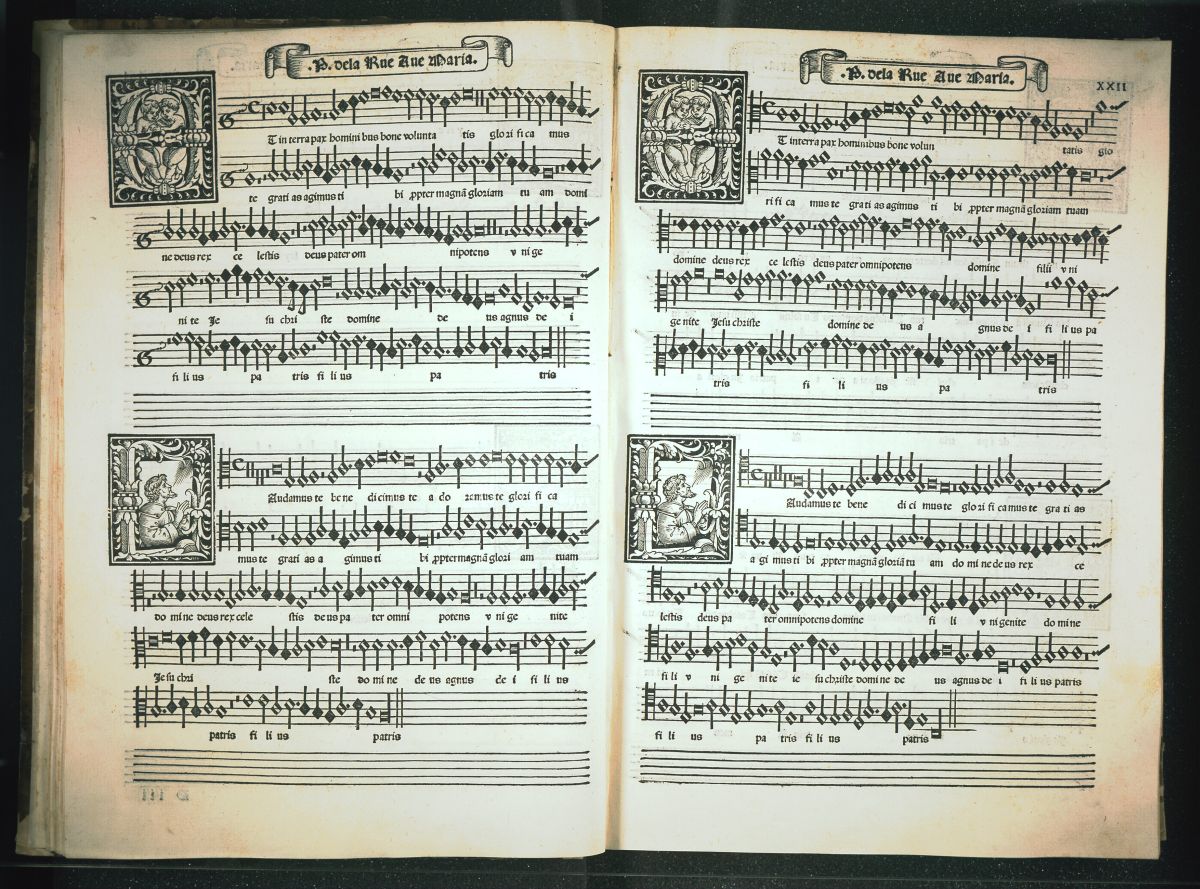 .P. dela Rue Aue Maria.
T in terra pax homini bus bone volunta tis glori fica mus
te grati as agimus ti bi ꝓpter magnã gloriam tu am domi
ne deus rex ce lestis deus pater om nipotens v ni ge
ni te Je su chri ste domine de us agnus de i
fi li us pa tris fi li us pa tris
L Audamus te be ne dicimus te a do ramus te glori fi ca
mus te grati as a gimus ti bi ꝓpter magnã glori am tuam
do mi ne deus rex cele stis de us pa ter omni potens v ni ge nite
Je su chri ste do mi ne de us agnus de i fi li us
patris fi li us patris
D III
.P. dela Rue Aue Maria.
XXII
T in terra pax hominibus bone volun tatis glo
ri fi ca mus te gra ti as agimus ti bi ꝓpter magnã gloriam tuam
domine deus rex ce lestis deus pater omnipotens domine filii v ni
ge nite Jesu christe domine de us a gnus de i fi li us pa
tris fi li us pa tris
L Audamus te bene di ci mus te glo ri fi ca mus te gra ti as
a gi mus ti bi ꝓpter magnã gloriã tu am do mi ne de us rex ce
lestis deus pa ter omnipotens domine fi li v ni genite do mi ne
fi li v ni ge ni te ie su christe domi ne de us agnus de i fi li us patris
fi li us pa tris fi li us patris